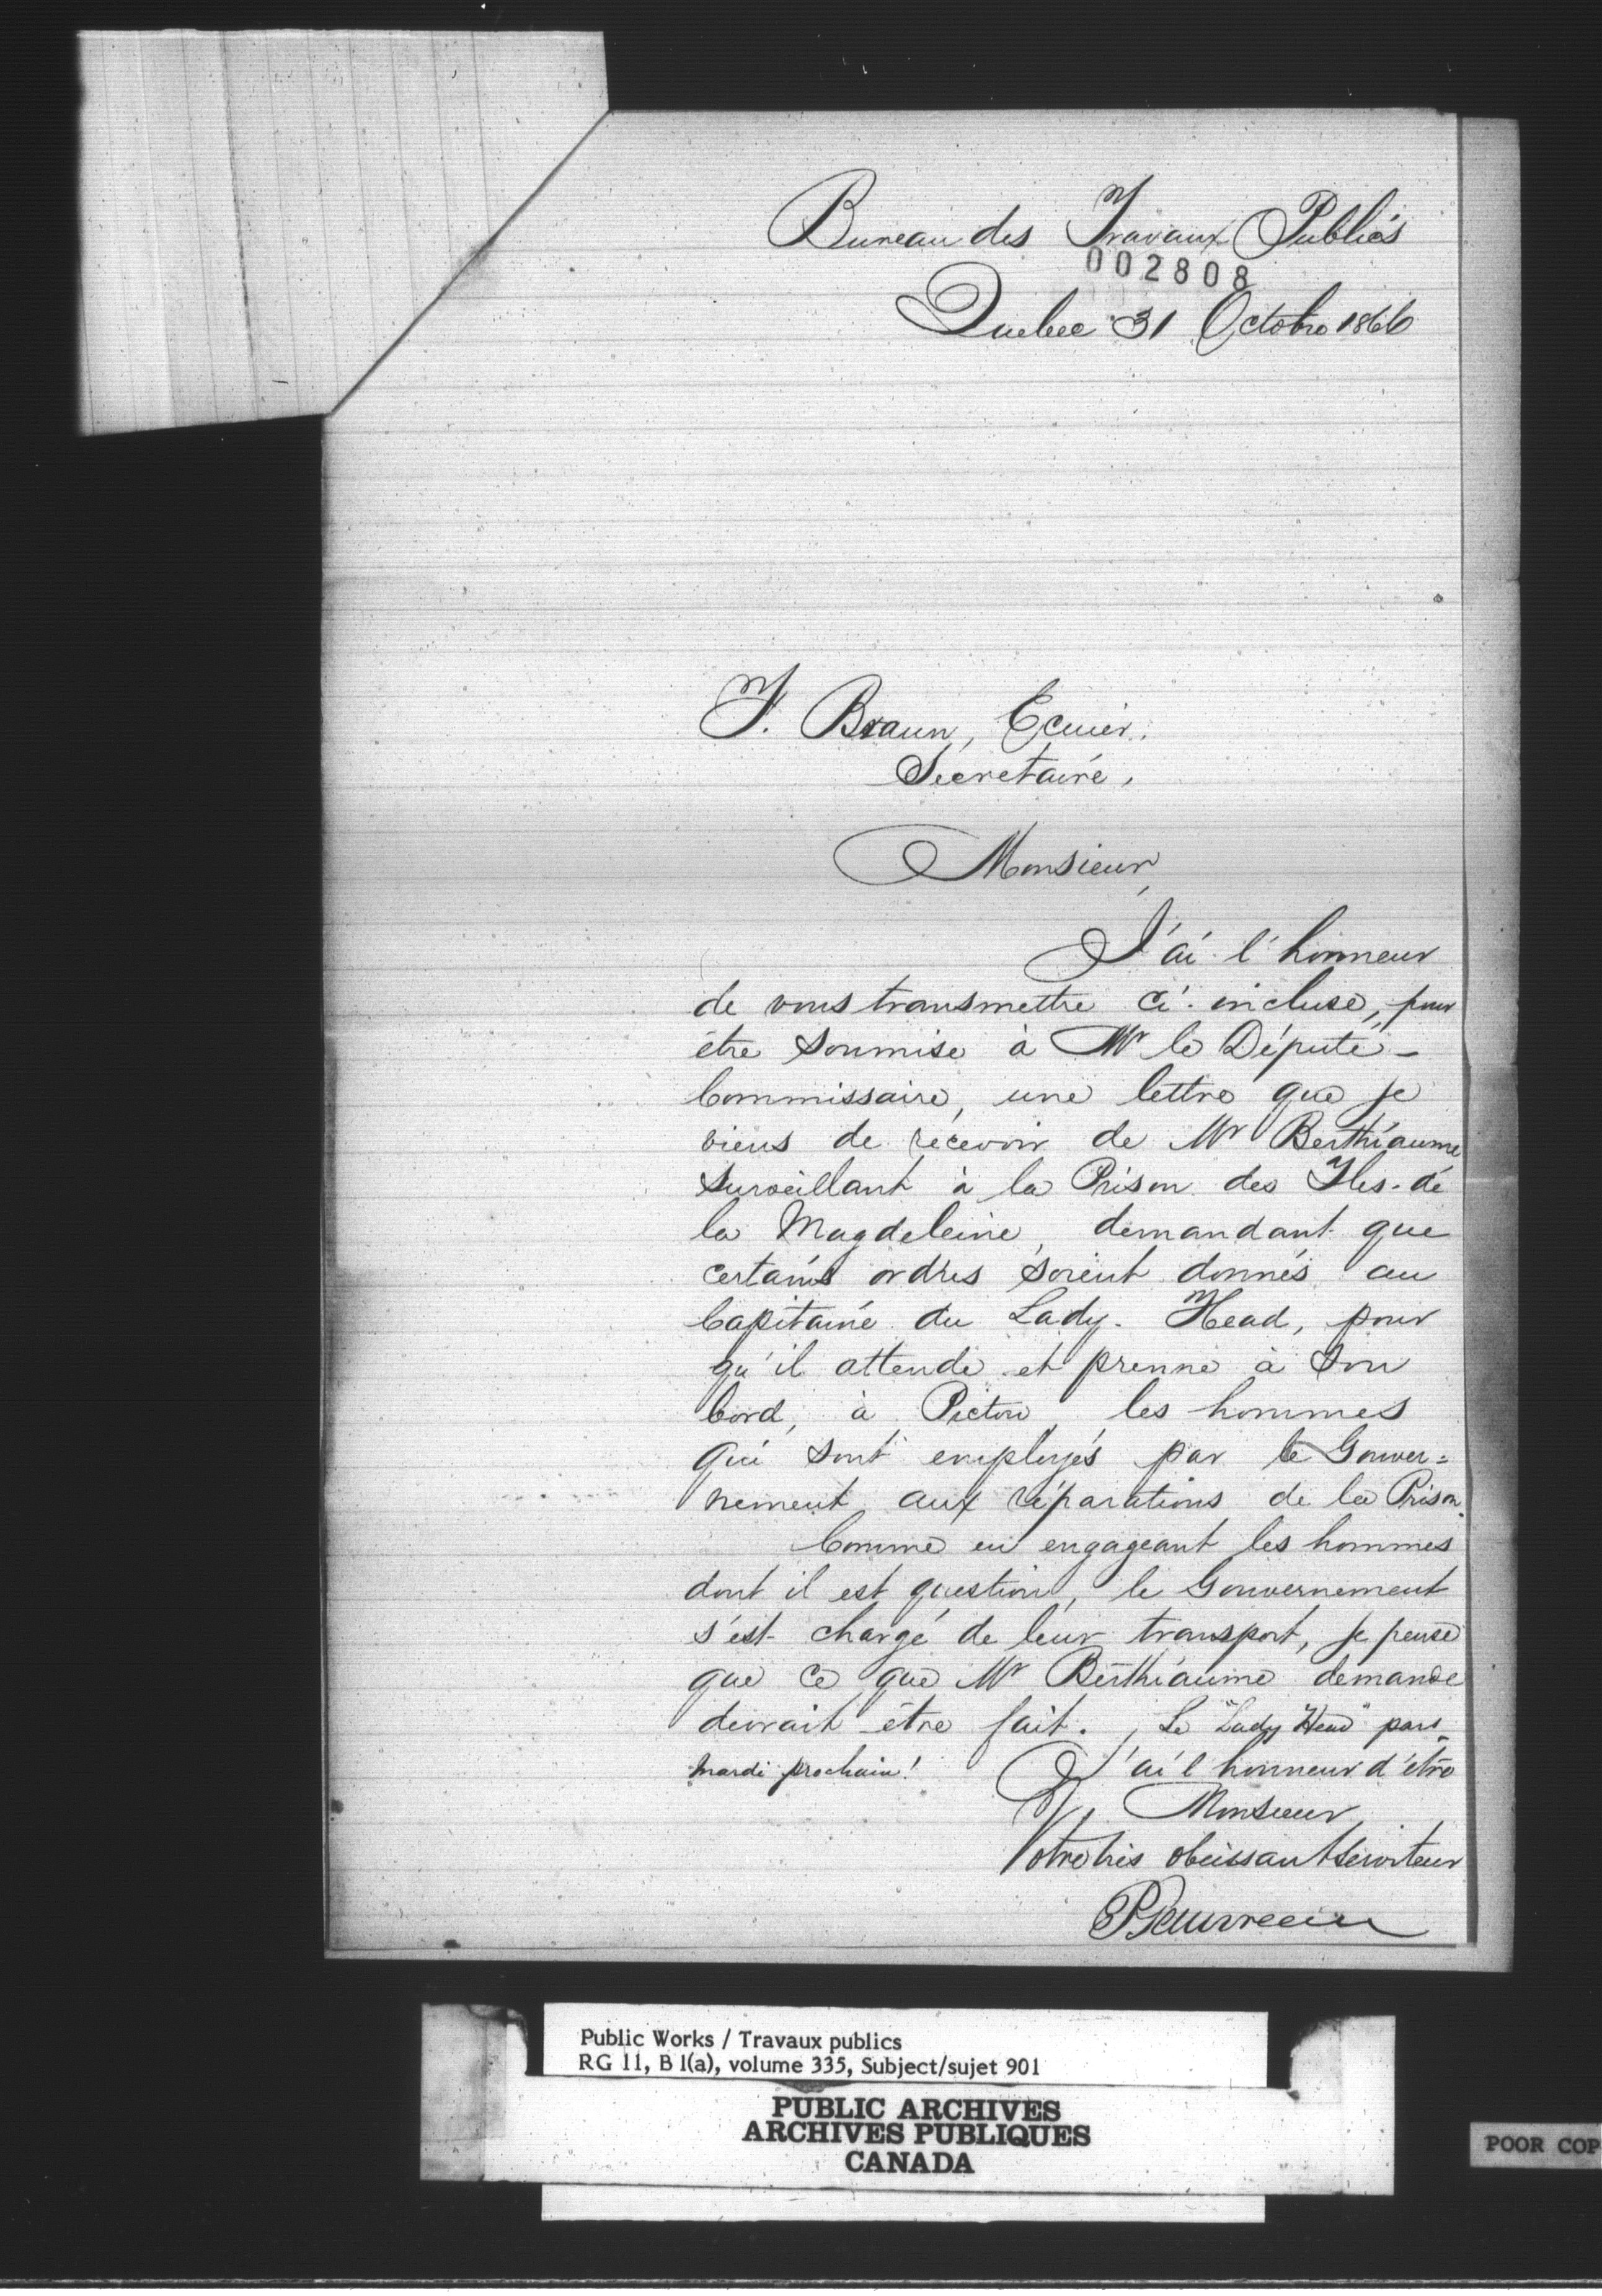 Bureau des Travaux Publics
002808
Quebec 31 Octobre 1866
F. Braun, Ecuier,
Secretaire,
Monsieur,
J'ai l'honneur
de vous transmettre ci-incluse, pour
être soumise à Mr le Député-
Commissaire, une lettre que je
viens de recevoir de Mr Berthiaume
surveillant à la Prison des Iles-de
la Magdeleine, demandant que
certains ordres soient donnés au
Capitaine du Lady-Head, pour
qu'il attende et prenne à son
bord, à Pictou, les hommes
qui sont employés par le Gouver=
nement aux réparations de la Prison.
Comme en engageant les hommes
dont il est question, le Gouvernement
s'est chargé de leur transport, je pense
que ce que Mr Berthiaume demande
devrait être fait. Le "Lady Head" part
mardi prochain!
J'ai l'honneur d'être
Monsieur,
Votre très obéissant Serviteur
Public Works / Travaux publics
RG 11, B 1(a), volume 335, Subject/sujet 901
PUBLIC ARCHIVES
ARCHIVES PUBLIQUES
CANADA
POOR COP